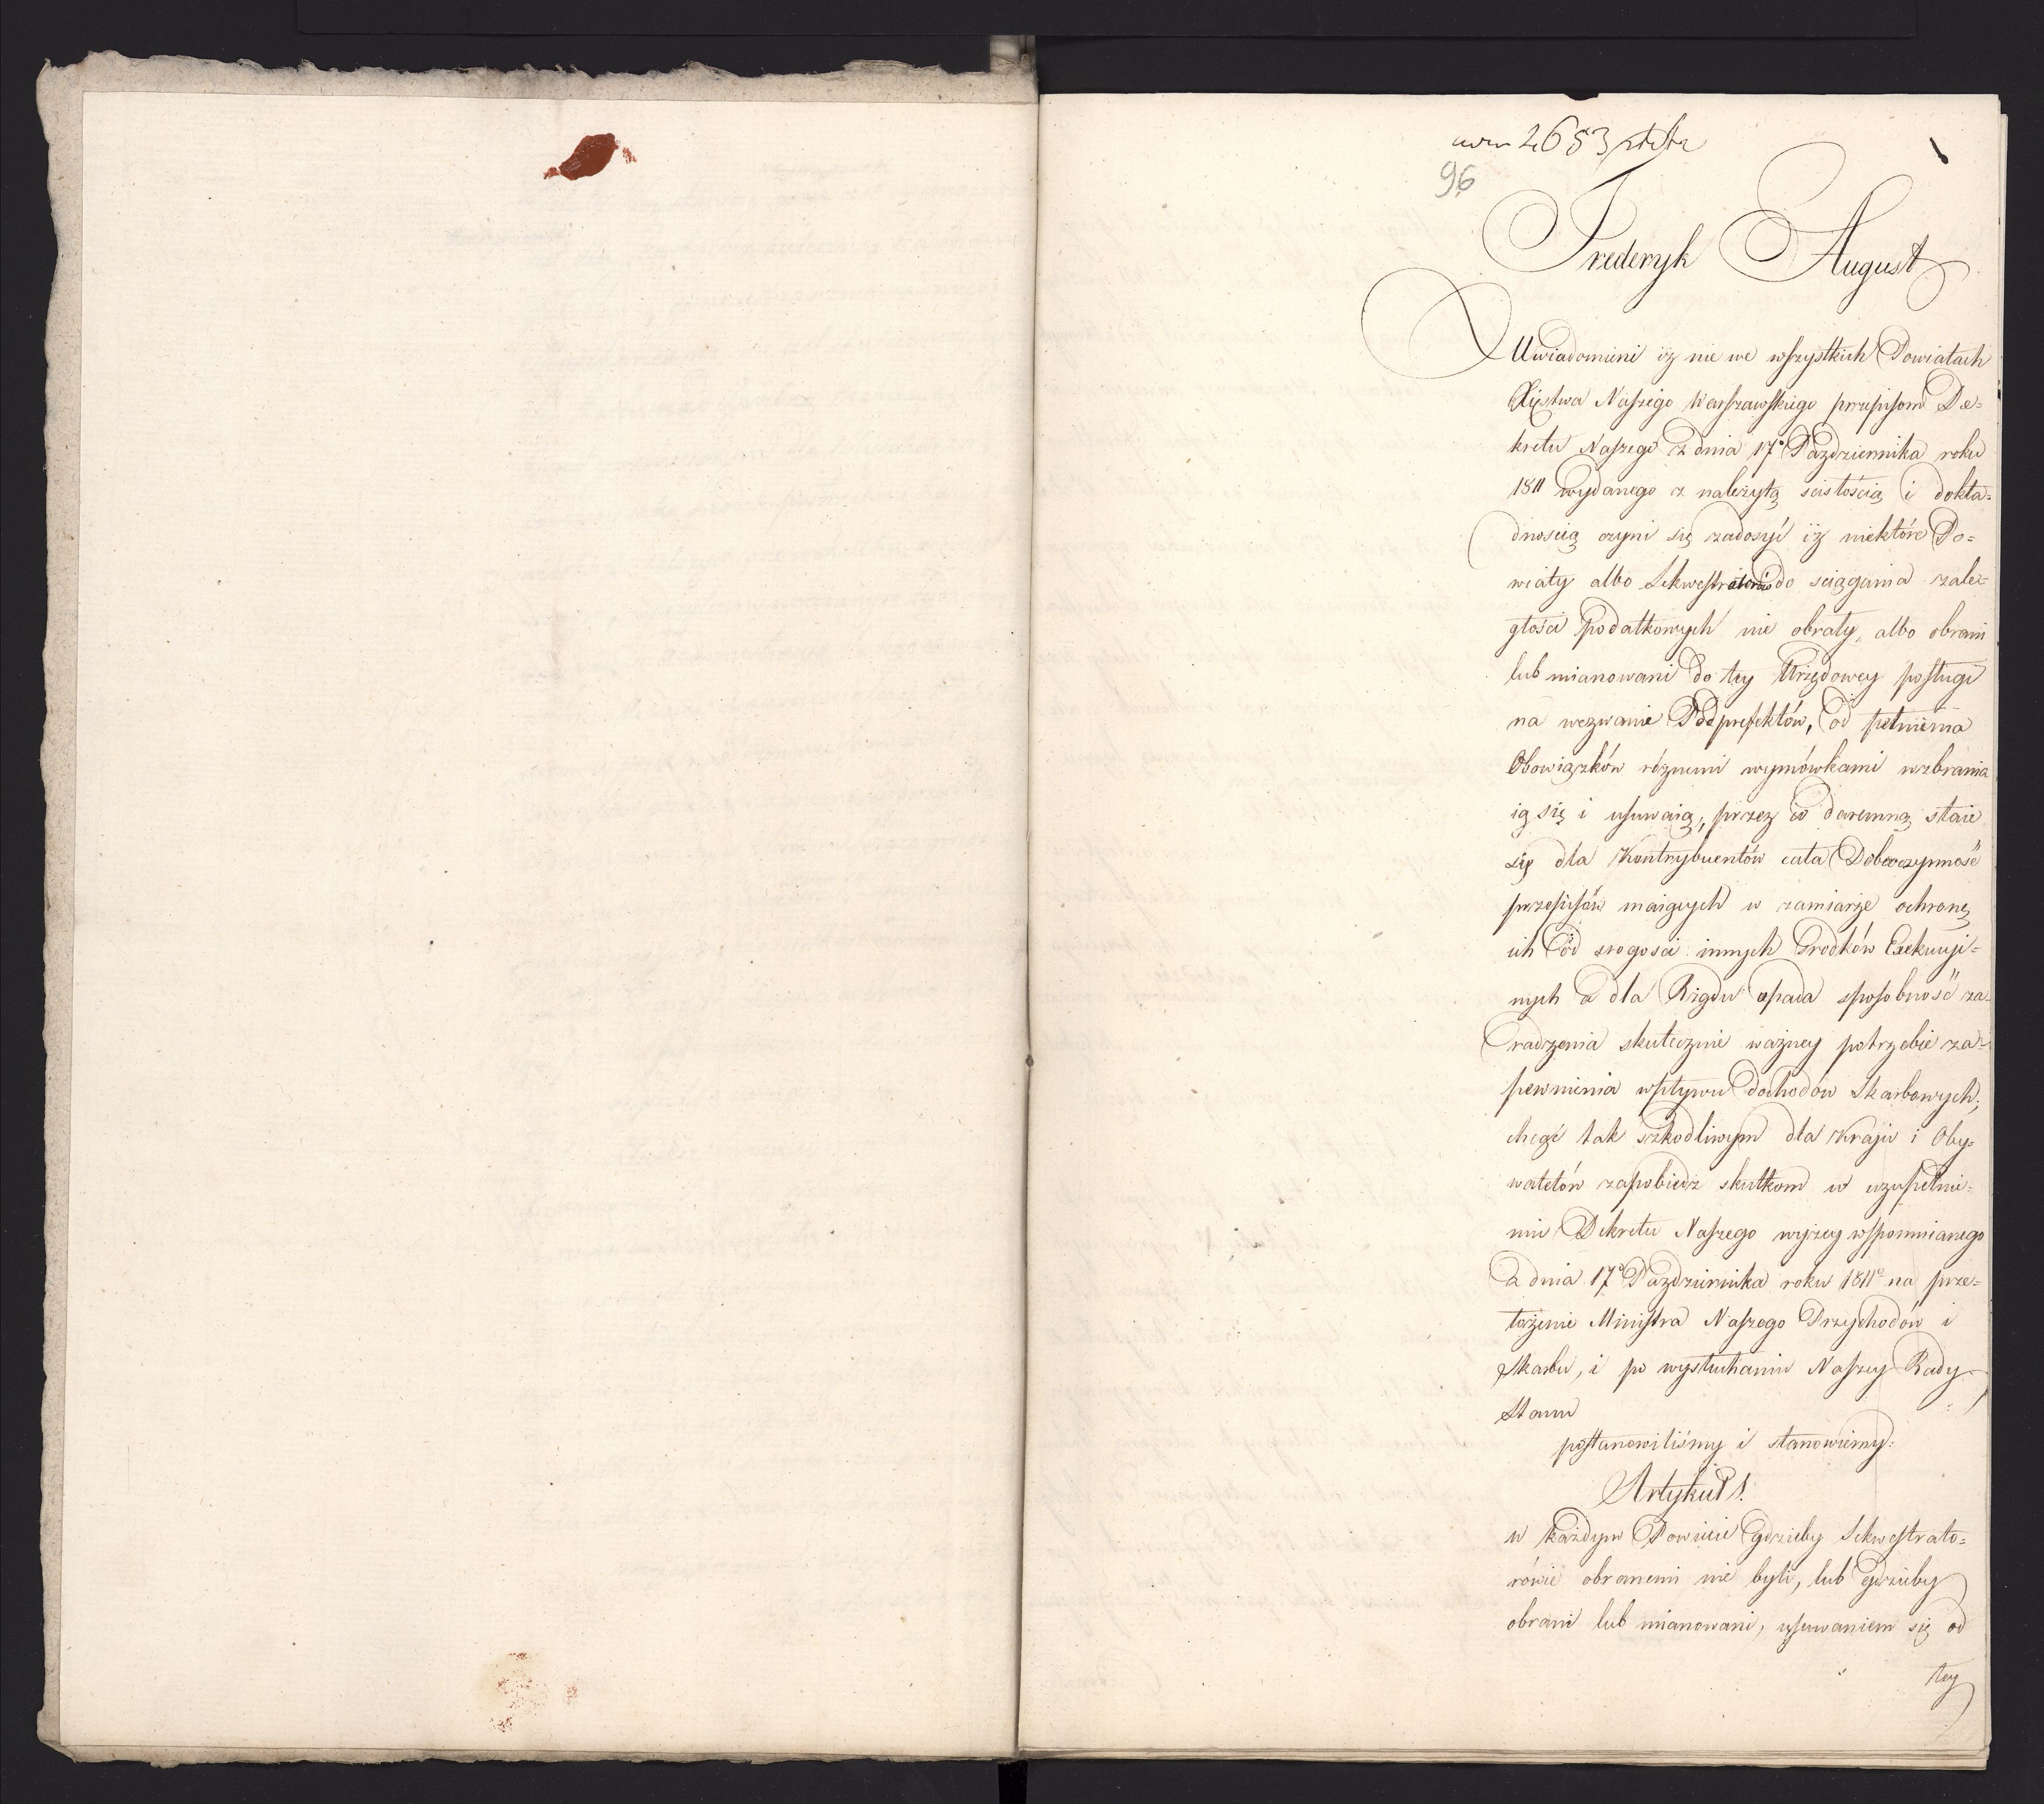 2653
96
Frederyk August
Uwiadomieni iż nie we wszystkich Powiatach
Xięstwa Naszego Warszawskiego przepisom De=
kretu Naszego z dnia 17º Października roku
1811 wydanego z należytą scisłością i dokła=
dnoscią czyni się zadosyć iż niektóre Po=
wiaty albo Sekwestratorów do sciągania zale=
głości Podatkowych nie obrały, albo obrani
lub mianowani do tey Urzędowey posługi
na wezwanie Podprefektów, od pełnienia
Obowiązków różnemi wymówkami wzbrania
ią się i usuwaią, przez co daremną staie
się dla Kontrybuentów cała Dobroczynność
przepisów maiących w zamiarze ochronę
ich od srogosci innych Srodków Exekucyi=
nych a dla Rządu upada sposobność za=
radzenia skutecznie ważney potrzebie za=
pewnienia wpływu dochodów Skarbowych;
chcąc tak szkodliwym dla Kraju i Oby=
watelów zapobiedz skutkom w uzupełnie=
niu Dekretu Naszego wyżey wspomnianego
z dnia 17º Października roku 1811º na prze=
łożenie Ministra Naszego Przychodów i
Skarbu, i po wysłuchaniu Naszey Rady
Stanu
postanowiliśmy i stanowiemy:
Artykuł 1.
w każdym Powiecie gdzieby Sekwestrato=
rowie obranemi nie byli, lub gdzieby
obrani lub mianowani, usuwaniem się od
tey